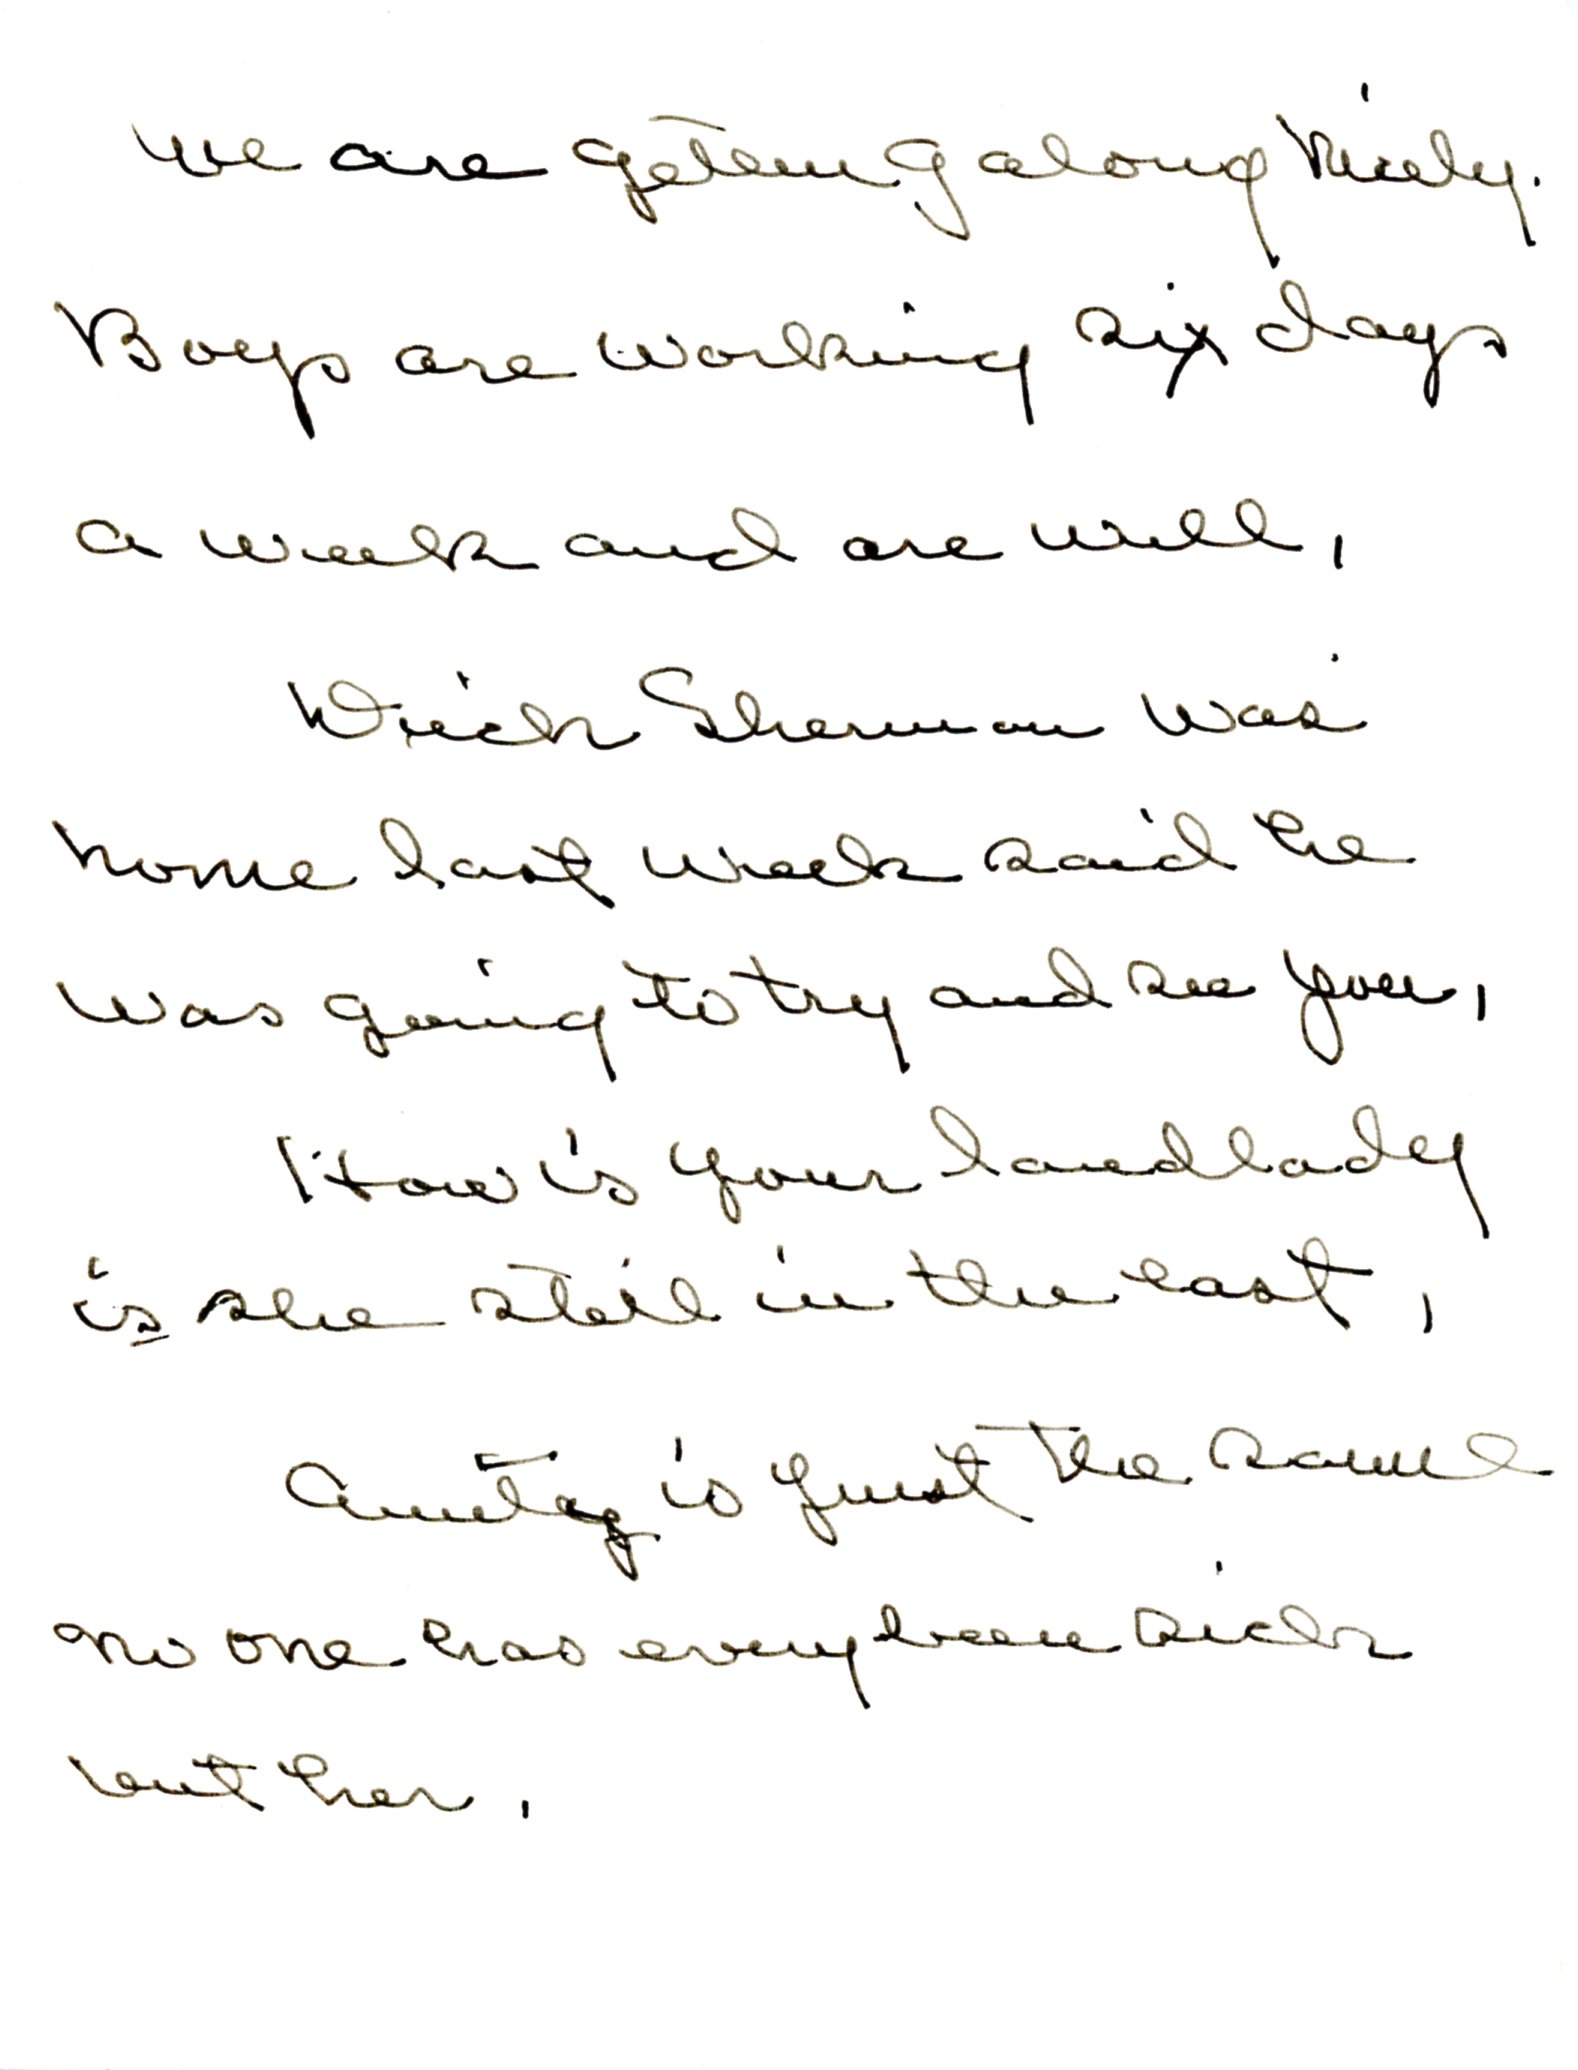 we are geteing along nicely.
Boys are working six days
a week and are well,
Dick Sherman was
home last week said he
was going to try and see you,
How is your landlady
is she still in the east,
is just the same
no one has every been sick
but her.